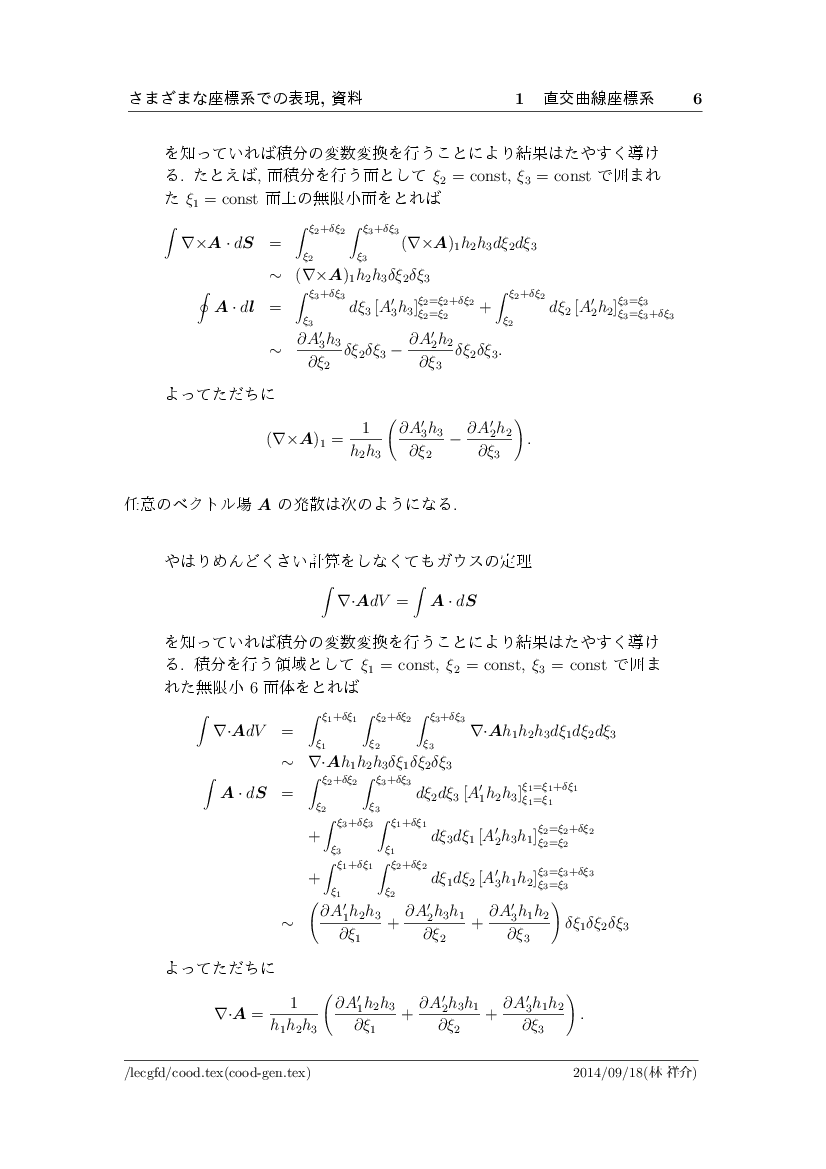 さまざまな座標系での表現, 資料 1 直交曲線座標系 6
を知っていれば積分の変数変換を行うことにより結果はたやすく導け
る. たとえば, 面積分を行う面として ξ₂ = const, ξ₃ = const で囲まれ
た ξ₁ = const 面上の無限小面をとれば
∫ ∇×A · dS = ∫_{ξ₂}^{ξ₂+δξ₂} ∫_{ξ₃}^{ξ₃+δξ₃} (∇×A)₁h₂h₃dξ₂dξ₃
∼ (∇×A)₁h₂h₃δξ₂δξ₃
∮ A · dl = ∫_{ξ₃}^{ξ₃+δξ₃} dξ₃ [A′₃h₃]_{ξ₂=ξ₂}^{ξ₂=ξ₂+δξ₂} + ∫_{ξ₂}^{ξ₂+δξ₂} dξ₂ [A′₂h₂]_{ξ₃=ξ₃+δξ₃}^{ξ₃=ξ₃}
∼ \frac{∂A′₃h₃}{∂ξ₂} δξ₂δξ₃ − \frac{∂A′₂h₂}{∂ξ₃} δξ₂δξ₃.
よってただちに
(∇×A)₁ = \frac{1}{h₂h₃} ( \frac{∂A′₃h₃}{∂ξ₂} − \frac{∂A′₂h₂}{∂ξ₃} ).
任意のベクトル場 A の発散は次のようになる.
やはりめんどくさい計算をしなくてもガウスの定理
∫ ∇·AdV = ∫ A · dS
を知っていれば積分の変数変換を行うことにより結果はたやすく導け
る. 積分を行う領域として ξ₁ = const, ξ₂ = const, ξ₃ = const で囲ま
れた無限小 6 面体をとれば
∫ ∇·AdV = ∫_{ξ₁}^{ξ₁+δξ₁} ∫_{ξ₂}^{ξ₂+δξ₂} ∫_{ξ₃}^{ξ₃+δξ₃} ∇·Ah₁h₂h₃dξ₁dξ₂dξ₃
∼ ∇·Ah₁h₂h₃δξ₁δξ₂δξ₃
∫ A · dS = ∫_{ξ₂}^{ξ₂+δξ₂} ∫_{ξ₃}^{ξ₃+δξ₃} dξ₂dξ₃ [A′₁h₂h₃]_{ξ₁=ξ₁}^{ξ₁=ξ₁+δξ₁}
+ ∫_{ξ₃}^{ξ₃+δξ₃} ∫_{ξ₁}^{ξ₁+δξ₁} dξ₃dξ₁ [A′₂h₃h₁]_{ξ₂=ξ₂}^{ξ₂=ξ₂+δξ₂}
+ ∫_{ξ₁}^{ξ₁+δξ₁} ∫_{ξ₂}^{ξ₂+δξ₂} dξ₁dξ₂ [A′₃h₁h₂]_{ξ₃=ξ₃}^{ξ₃=ξ₃+δξ₃}
∼ ( \frac{∂A′₁h₂h₃}{∂ξ₁} + \frac{∂A′₂h₃h₁}{∂ξ₂} + \frac{∂A′₃h₁h₂}{∂ξ₃} ) δξ₁δξ₂δξ₃
よってただちに
∇·A = \frac{1}{h₁h₂h₃} ( \frac{∂A′₁h₂h₃}{∂ξ₁} + \frac{∂A′₂h₃h₁}{∂ξ₂} + \frac{∂A′₃h₁h₂}{∂ξ₃} ).
/lecgfd/cood.tex(cood-gen.tex) 2014/09/18(林 祥介)